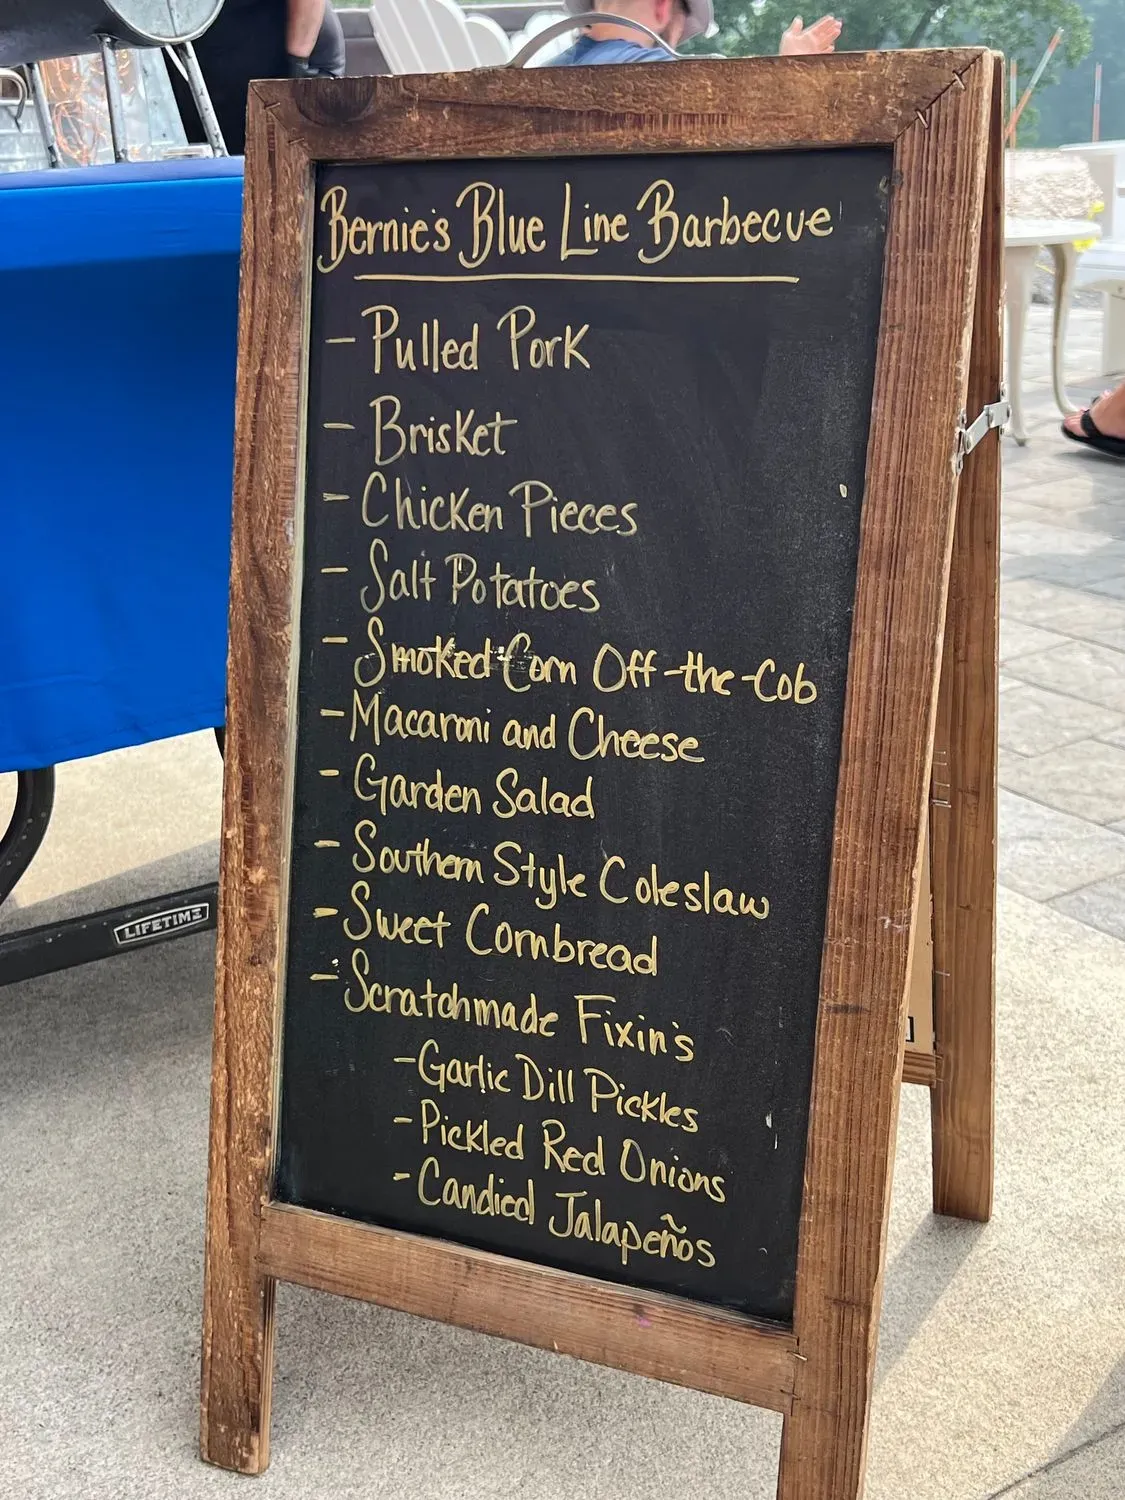 Bernie's Blue Line Barbecue
- Pulled Pork
- Brisket
- Chicken Pieces
- Salt Potatoes
- Smoked Corn Off-the-Cob
- Macaroni and Cheese
- Garden Salad
- Southern Style Coleslaw
- Sweet Cornbread
- Scratchmade Fixin's
- Garlic Dill Pickles
- Pickled Red Onions
- Candied Jalapeños
LIFETIME